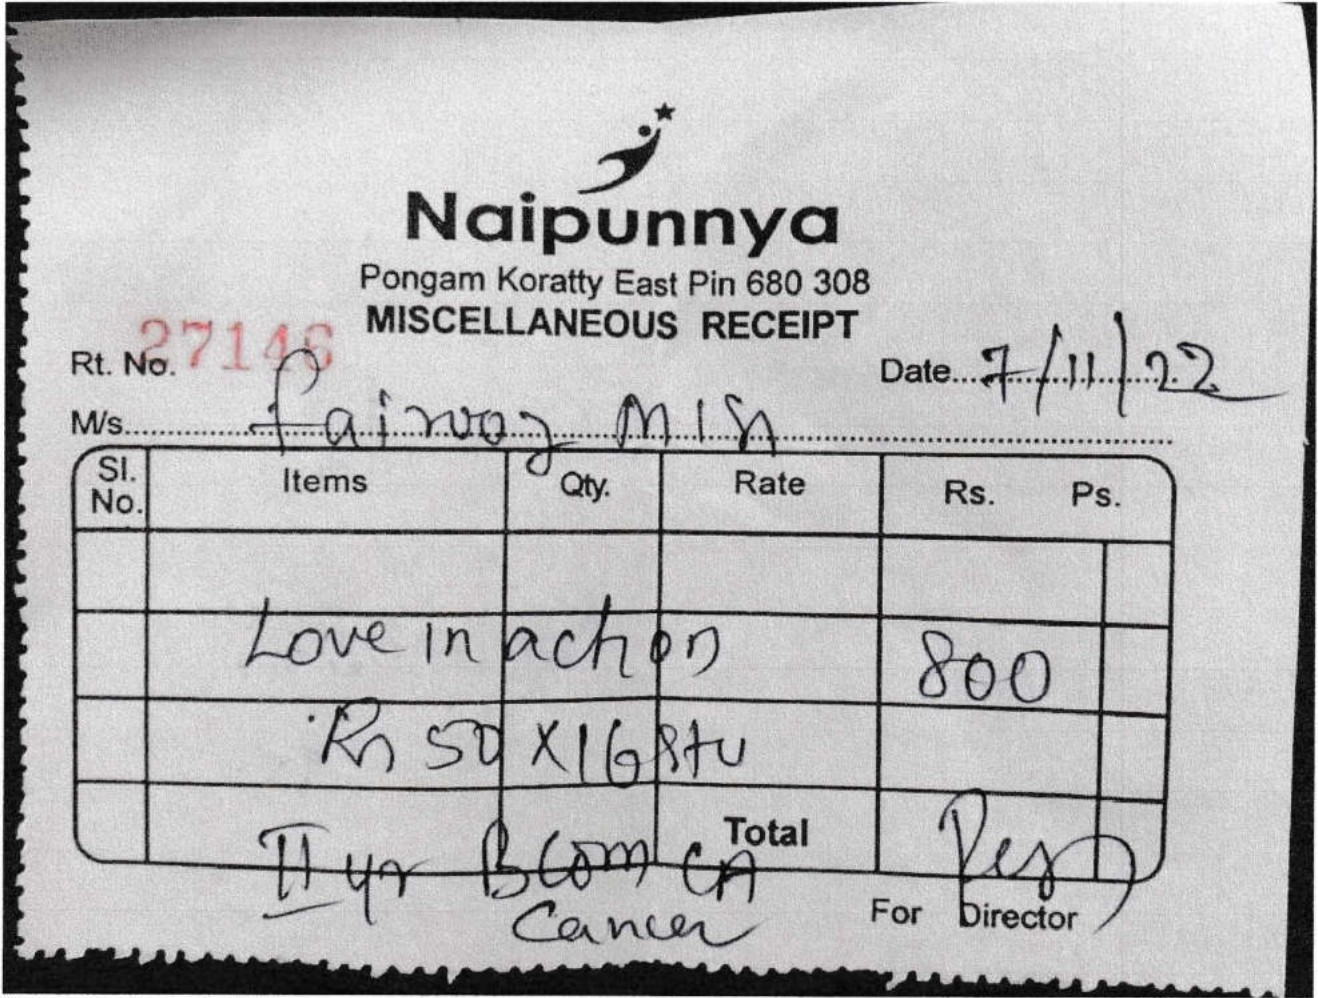 Naipunnya
Pongam Koratty East Pin 680 308
MISCELLANEOUS RECEIPT
Rt. No. 27146
Date 7/11/22
M/s. Fairooz
Sl. No. Items Qty. Rate Rs. Ps.
Love in action 800
Rs 50 X 16 stu
Total
II yr B Com CA
Cancer
For Director